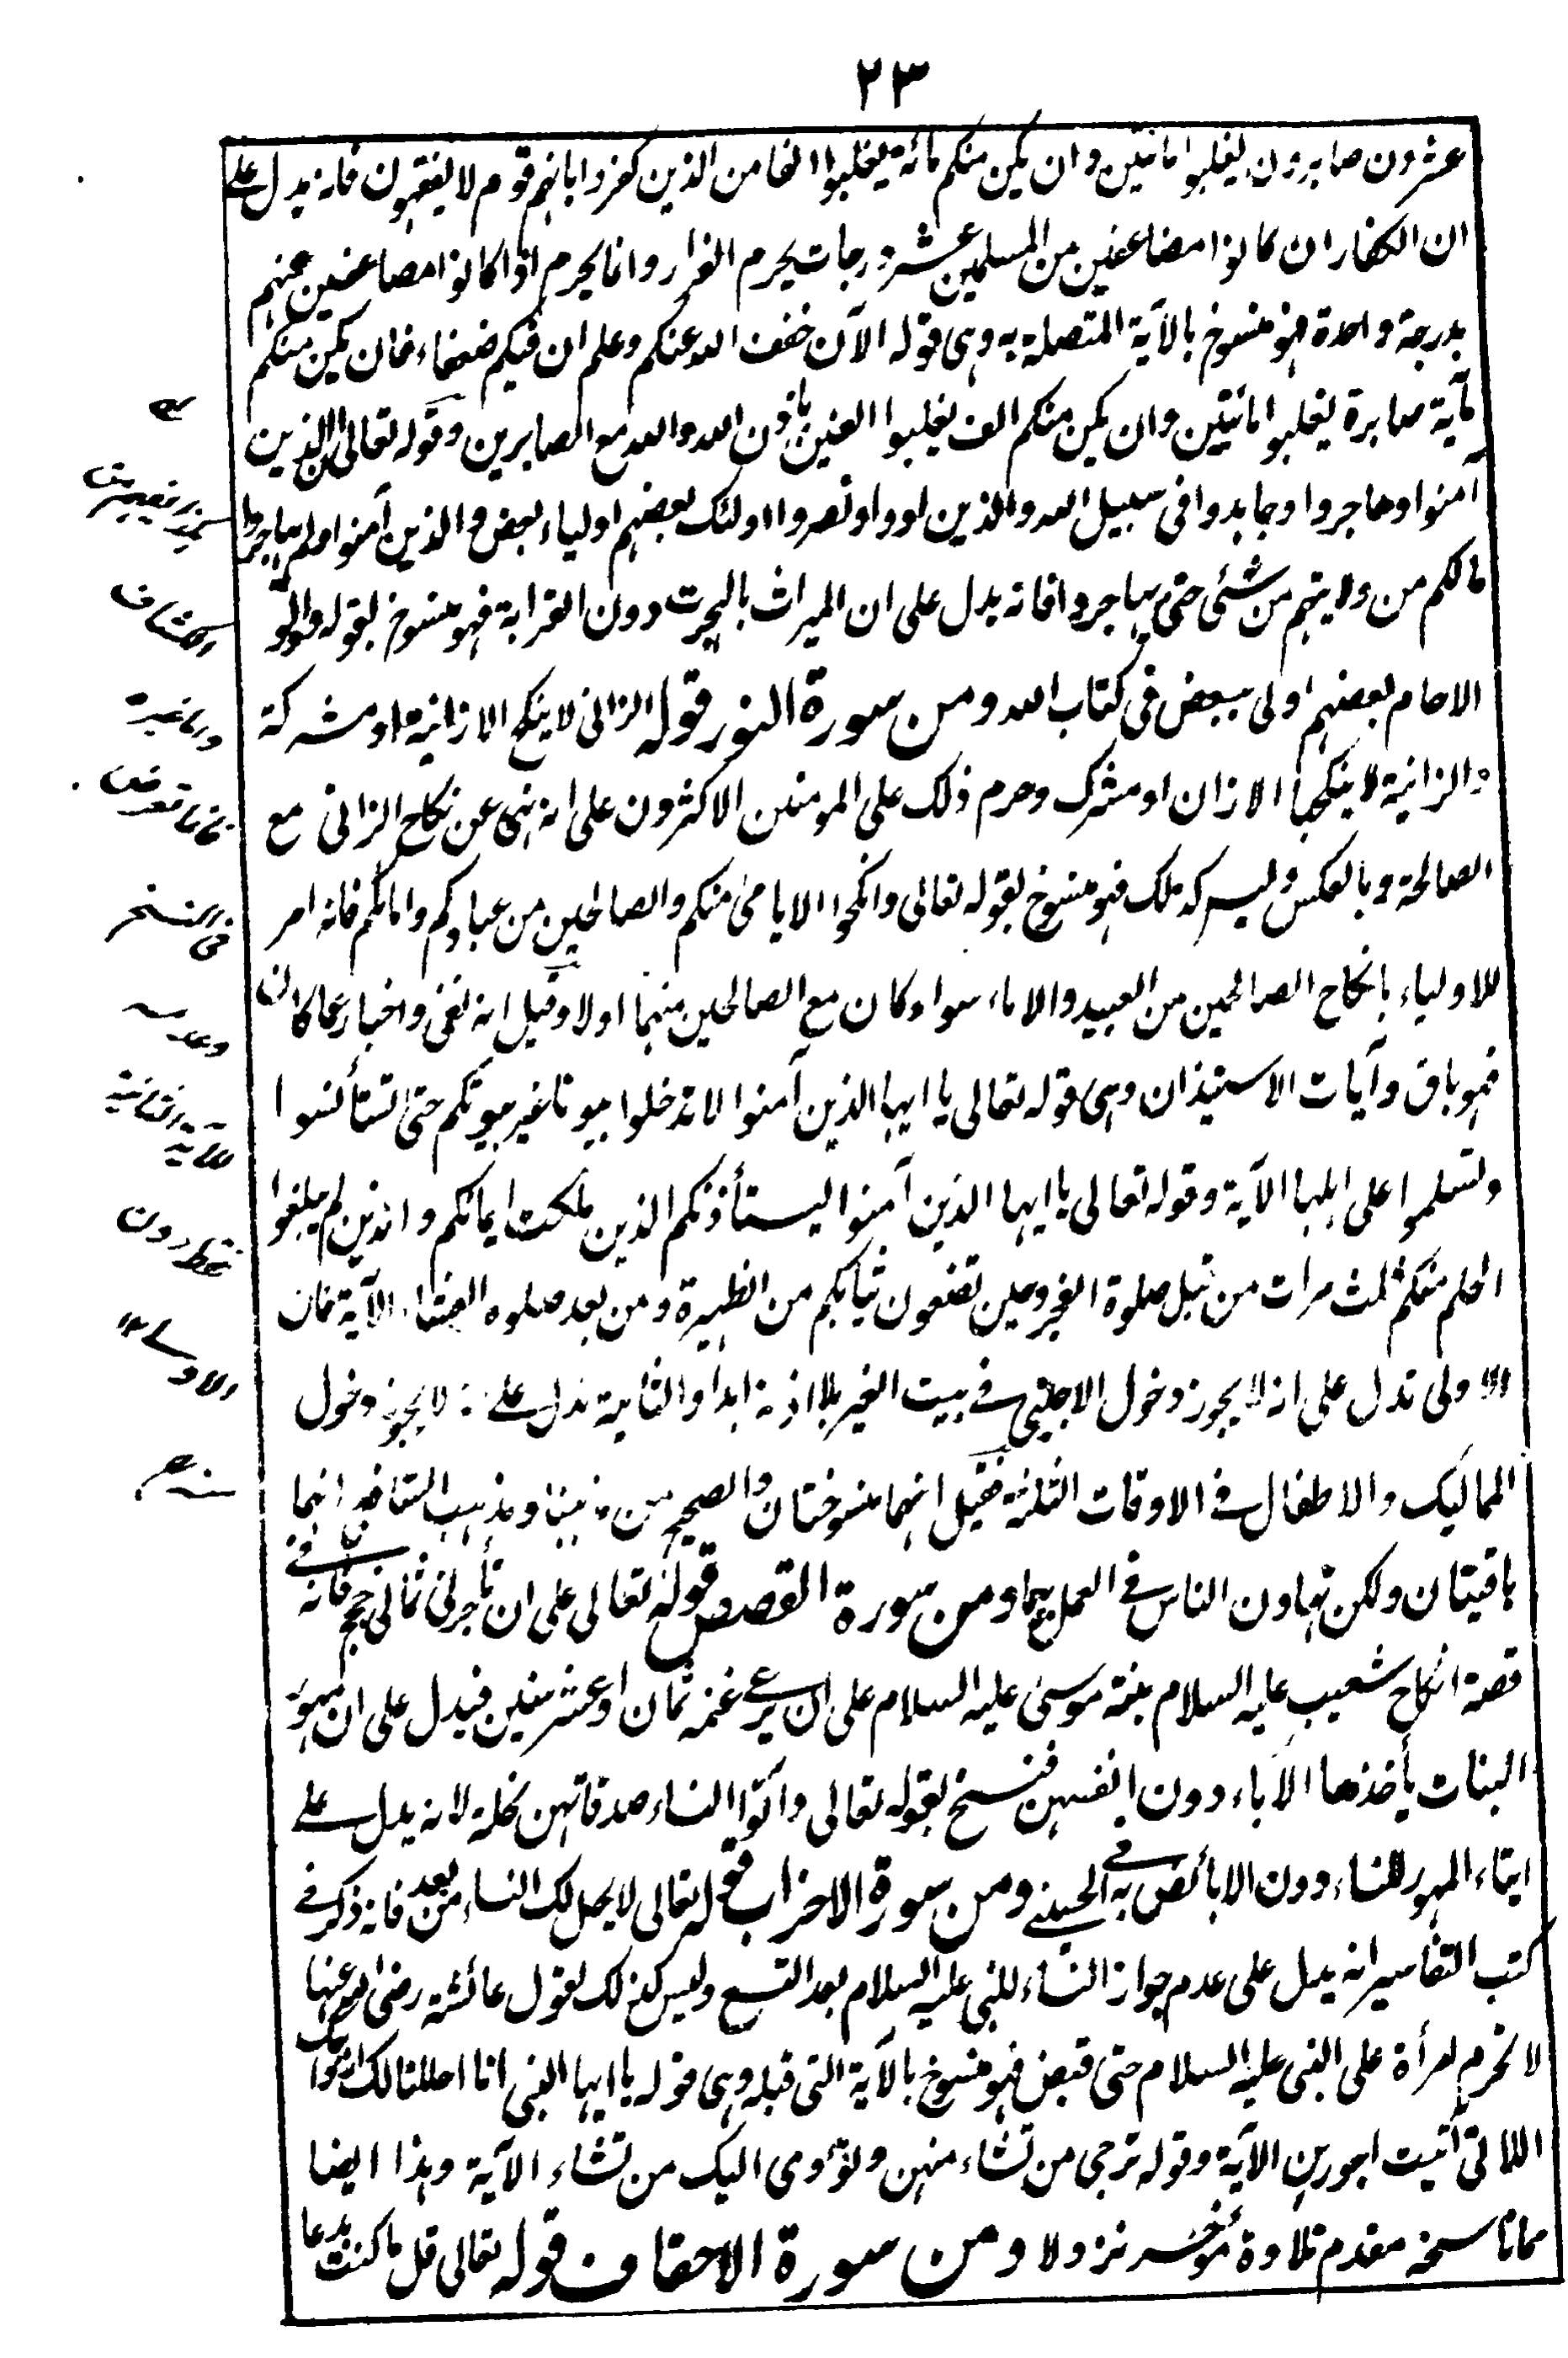 ٢٣
عشرون صابرون يغلبوا مائتين وان يكن منكم مائة يغلبوا الفا من الذين كفروا بانهم قوم لا يفقهون فانه يدل على
ان الكفار ان كانوا مضاعفين من المسلمين عشر درجات يحرم الفرار وانما يحرم اذا كانوا مضاعفين عنهم
بدرجة واحدة فهو منسوخ بالآية المتصلة به وهى قوله الآن خفف الله عنكم وعلم ان فيكم ضعفاء فان يكن منكم
مأية صابرة يغلبوا مائتين وان يكن منكم الف يغلبوا الفين باذن الله والله مع الصابرين وقوله تعالى ان الذين
آمنوا وهاجروا وجاهدوا فى سبيل الله والذين اووا ونصروا اولئك بعضهم اولياء بعض والذين آمنوا ولم يهاجروا
مالكم من ولايتهم من شئى حتى يهاجروا فانه يدل على ان الميراث بالهجرت دون القرابة فهو منسوخ بقوله واولو
الارحام بعضهم اولى ببعض فى كتاب الله ومن سورة النور قوله الزانى لا ينكح الا زانية او مشركة
والزانية لا ينكحها الا زان او مشرك وحرم ذلك على المومنين الاكثرون على انه نهى عن نكاح الزانى مع
الصالحة وبالعكس وليس كذلك فهو منسوخ بقوله تعالى وانكحوا الايامى منكم والصالحين من عبادكم وامائكم فانه امر
للاولياء بانكاح الصالحين من العبيد والاماء سواء كان مع الصالحين منهما اولا وقيل انه نفى واخبار عما كان
فهو باق وآيات الاستيذان وهى قوله تعالى يا ايها الذين آمنوا لا تدخلوا بيوتا غير بيوتكم حتى تستأنسوا
وتسلموا على اهلها الآية وقوله تعالى يا ايها الذين آمنوا ليستأذنكم الذين ملكت ايمانكم والذين لم يبلغوا
الحلم منكم ثلث مرات من قبل صلوة الفجر وحين تضعون ثيابكم من الظهيرة ومن بعد صلوة العشاء الآية فان
الاولى تدل على انه لا يجوز دخول الاجنبى فى بيت الغير بلا اذنه ابدا والثانية تدل على انه لا يجوز دخول
المماليك والاطفال فى الاوقات الثلثة فقيل انهما منسوختان والصحيح من مذهبنا ومذهب الشافعى انهما
باقيتان ولكن تهاون الناس فى العمل بهما ومن سورة القصص قوله تعالى على ان تأجرنى ثمانى حجج فانه فى
قصة انكاح شعيب عليه السلام بنته موسى عليه السلام على ان يرعى غنمه ثمان او عشر سنين فيدل على ان مهور
البنات يأخذها الآباء دون انفسهن فنسخ بقوله تعالى وآتوا النساء صدقاتهن نحلة لانه يدل على
ايتاء المهور للنساء دون الاباء نص به فى الحسينى ومن سورة الاحزاب قوله تعالى لا يحل لك النساء من بعد فانه ذكر فى
كتب التفاسير انه يدل على عدم جواز النساء للنبى عليه السلام بعد التسع وليس كذلك لقول عائشة رضى الله عنها
لا تحرم امرأة على النبى عليه السلام حتى قبض فهو منسوخ بالآية التى قبله وهى قوله يا ايها النبى انا احللنا لك ازواجك
اللاتى آتيت اجورهن الآية وقوله ترجى من تشاء منهن وتؤوى اليك من تشاء الآية وهذا ايضا
مما ناسخه مقدم تلاوة مؤخر نزولا ومن سورة الاحقاف قوله تعالى قل ما كنت بدعا